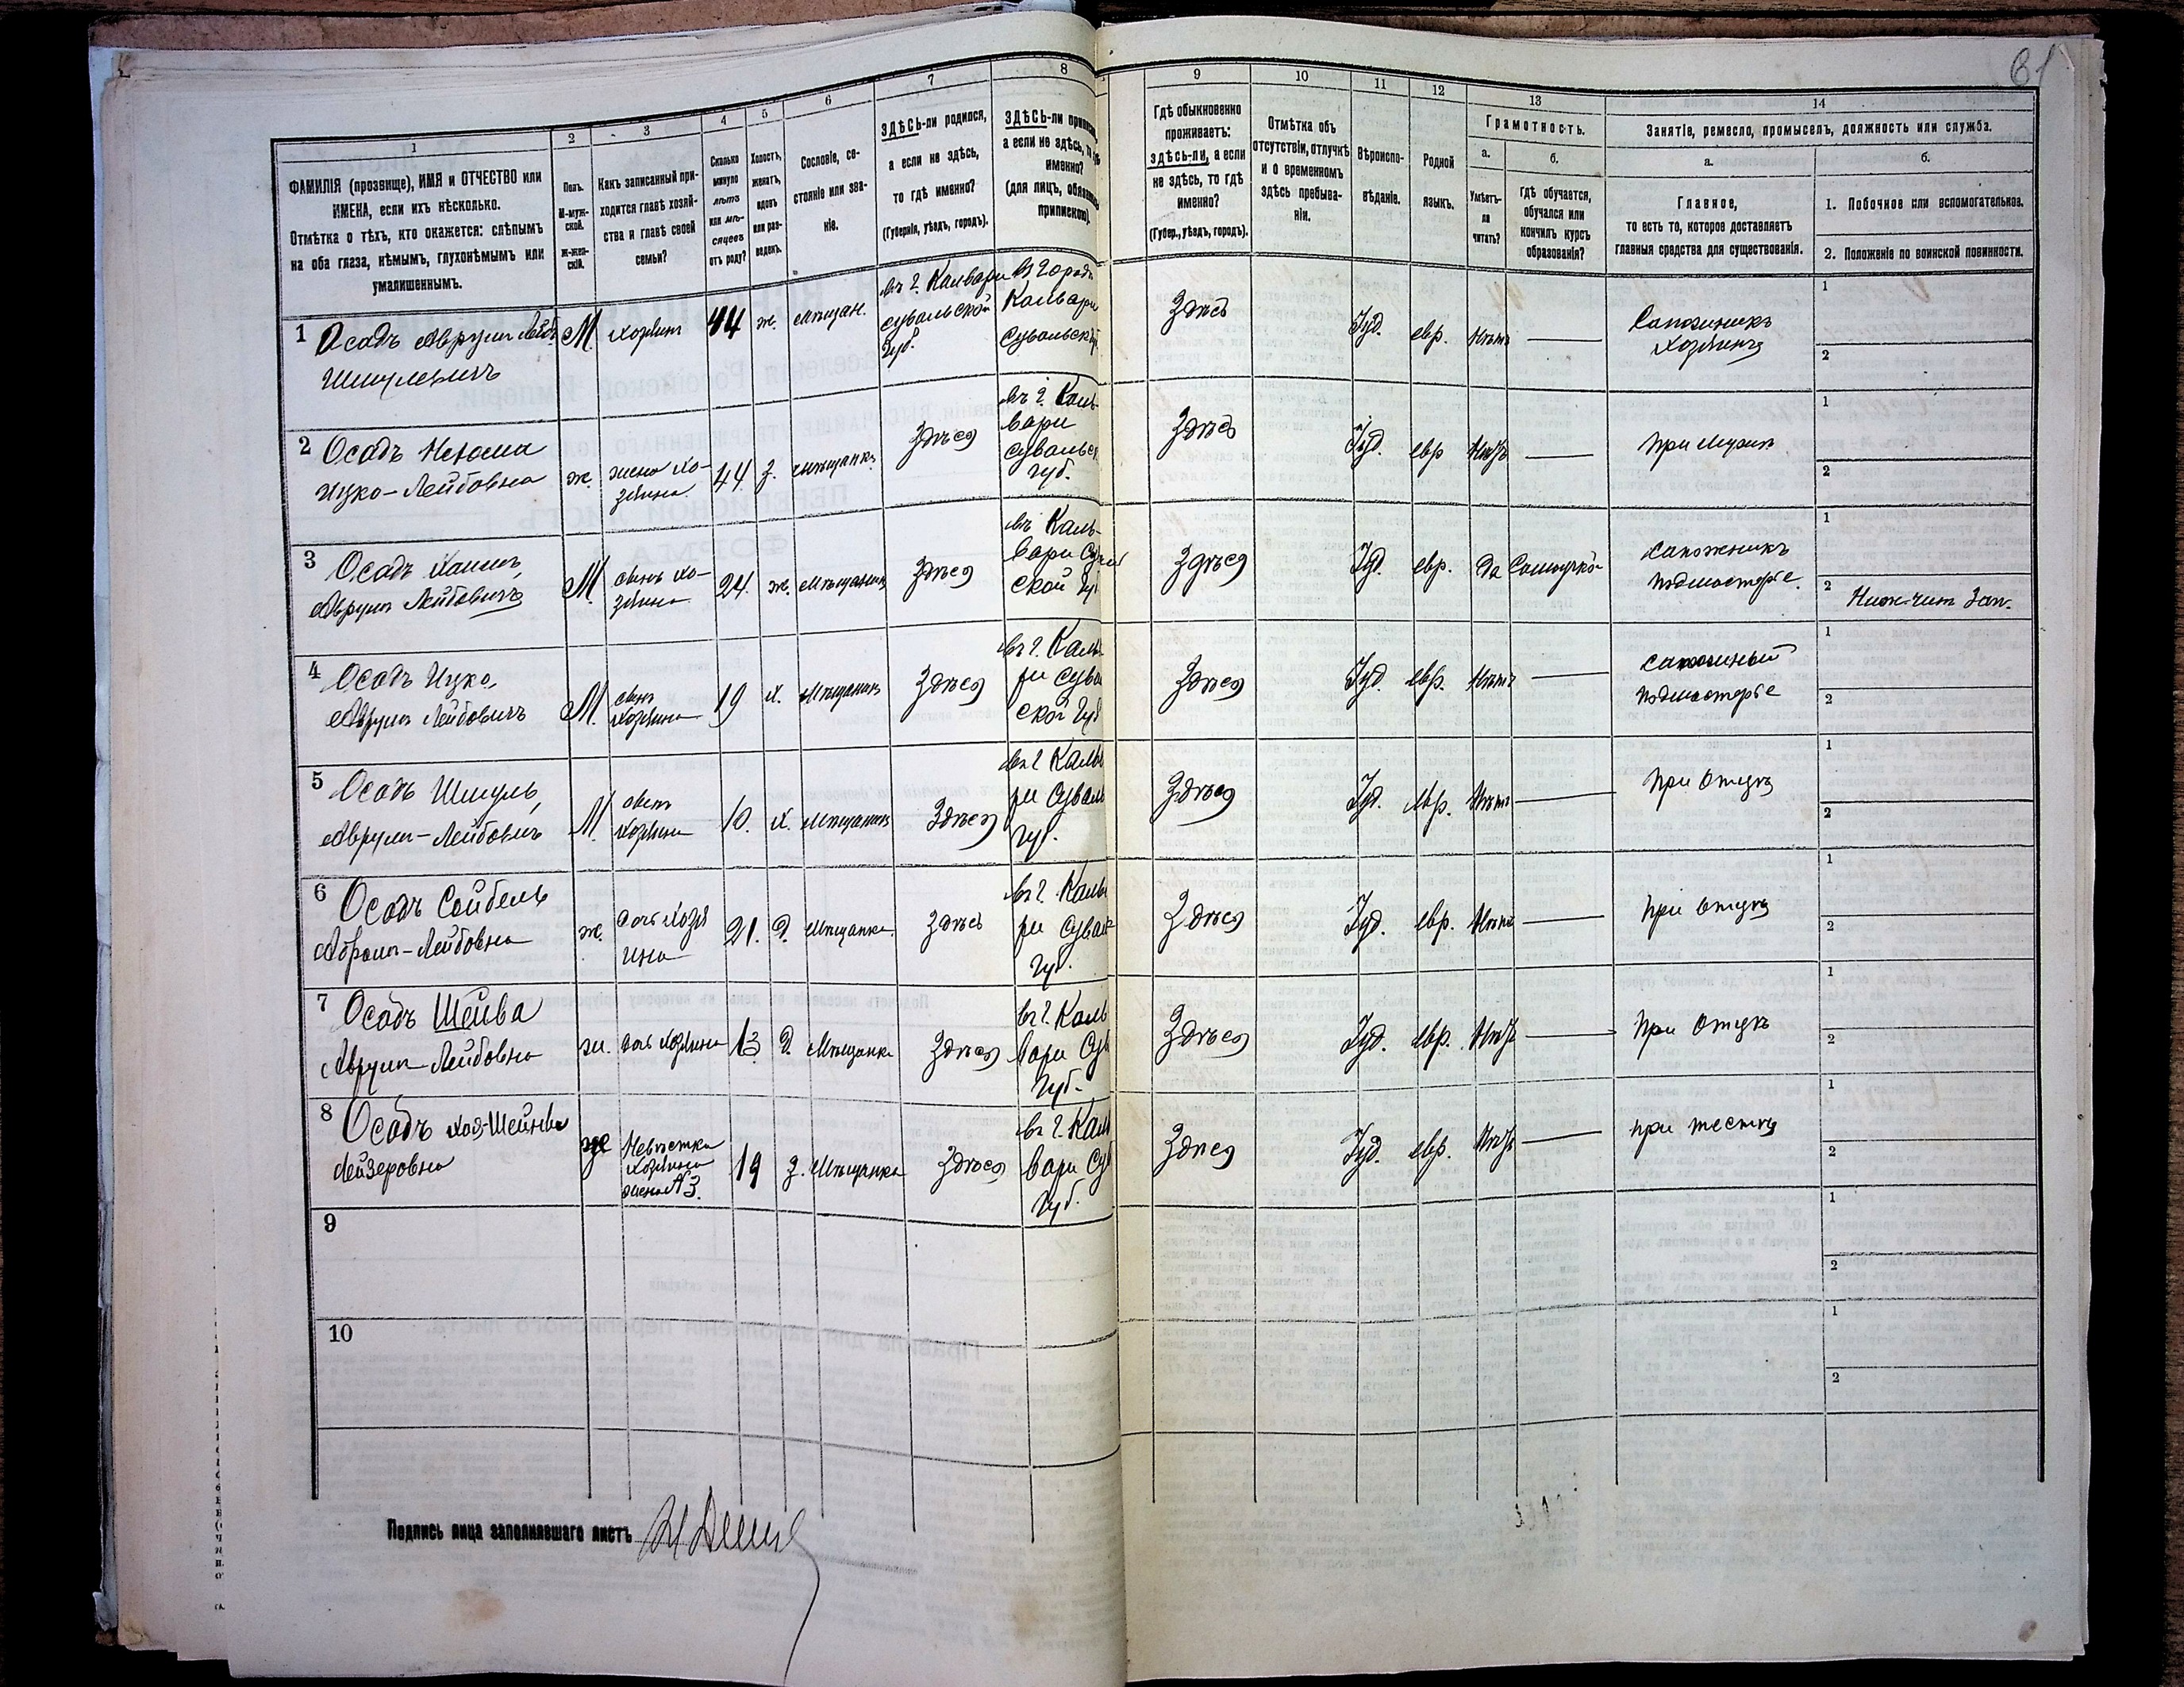 61
1 2 3 4 5 6 7 8 9 10 11 12 13 14
ФАМИЛІЯ (прозвище), ИМЯ и ОТЧЕСТВО или
ИМЕНА, если ихъ нѣсколько.
Отмѣтка о тѣхъ, кто окажется: слѣпымъ
на оба глаза, нѣмымъ, глухонѣмымъ или
умалишеннымъ.
Полъ.
М-муж-
ской.
Ж-жен-
скій.
Какъ записанный при-
ходится главѣ хозяй-
ства и главѣ своей
семьи?
Сколько
минуло
лѣтъ
или мѣ-
сяцевъ
отъ роду?
Холостъ,
женатъ,
вдовъ
или раз-
веденъ.
Сословіе, со-
стояніе или зва-
ніе.
ЗДѢСЬ-ли родился,
а если не здѣсь,
то гдѣ именно?
(Губернія, уѣздъ, городъ).
ЗДѢСЬ-ли
а если не здѣсь,
именно?
(для лицъ,
припискою).
Гдѣ обыкновенно
проживаетъ:
здѣсь-ли, а если
не здѣсь, то гдѣ
именно?
(Губер., уѣздъ, городъ).
Отмѣтка объ
отсутствіи, отлучкѣ
и о временномъ
здѣсь пребыва-
ніи.
Вѣроиспо-
вѣданіе.
Родной
языкъ.
Грамотность.
а. б.
Умѣетъ-
ли
читать?
Гдѣ обучается,
обучался или
кончилъ курсъ
образованія?
Занятіе, ремесло, промыселъ, должность или служба.
а. б.
Главное,
то есть то, которое доставляетъ
главныя средства для существованія.
1. Побочное или вспомогательное.
2. Положеніе по воинской повинности.
1 Осадъ Аврумъ Лейб
Шмулевичъ
М. хозяинъ 44 ж. мѣщан.
въ г. Кальвари
сувальской
губ.
въ городѣ
Кальвари
сувальск
Здѣсь Іуд. евр. Нѣтъ
Сапожникъ
хозяинъ
1
2
2 Осадъ Нехама
Ицко-Лейбовна
ж. жена хо-
зяина 44 з. мѣщанка Здѣся
въ г. Каль-
вари
сувальск
губ.
Здѣсь Іуд. евр Нѣтъ при мужѣ
1
2
3 Осадъ Хаимъ
Аврумъ Лейбовичъ
М. сынъ хо-
зяина 24. ж. мѣщанинъ Здѣся
въ Каль-
вари Сувал
ской гу
Здѣся Іуд. евр. да Самоучка
сапожникъ
подмастерье
1
2 Ниж. чин Зап.
4 Осадъ Ицко
Аврумъ Лейбовичъ
М. сынъ
хозяина 19 х. мѣщанинъ Здѣся
въ г. Каль
ри сува
ской губ
Здѣся Іуд. евр. Нѣтъ
сапожный
подмастерье
1
2
5 Осадъ Шмуль
Аврумъ-Лейбовичъ
М. сынъ
хозяина 10. х. мѣщанинъ Здѣся
въ г Каль
ри Суваль
губ.
Здѣся Іуд. евр. Нѣтъ при отцѣ
1
2
6 Осадъ Сейбель
Абрамъ-Лейбовна
ж. дочь хозя
ина 21. д. мѣщанка. Здѣсь
въ г. Каль
ри Сувал
губ.
Здѣся Іуд. евр. Нѣтъ при отцѣ
1
2
7 Осадъ Шейва
Аврумъ-Лейбовна
ж. дочь хозяина 13 д. мѣщанка Здѣся
въ г. Каль
вари Сув
губ.
Здѣся Іуд. евр. Нѣтъ при отцѣ
1
2
8 Осадъ Хая-Шейнва
Лейзеровна
же Невѣстка
хозяина
жена №3. 19 з. мѣщанка Здѣся
въ г. Каль
вари Сув
губ.
Здѣся Іуд. евр. Нѣтъ при тестѣ
1
2
9
1
2
10
1
2
Подпись лица заполнявшаго листъ